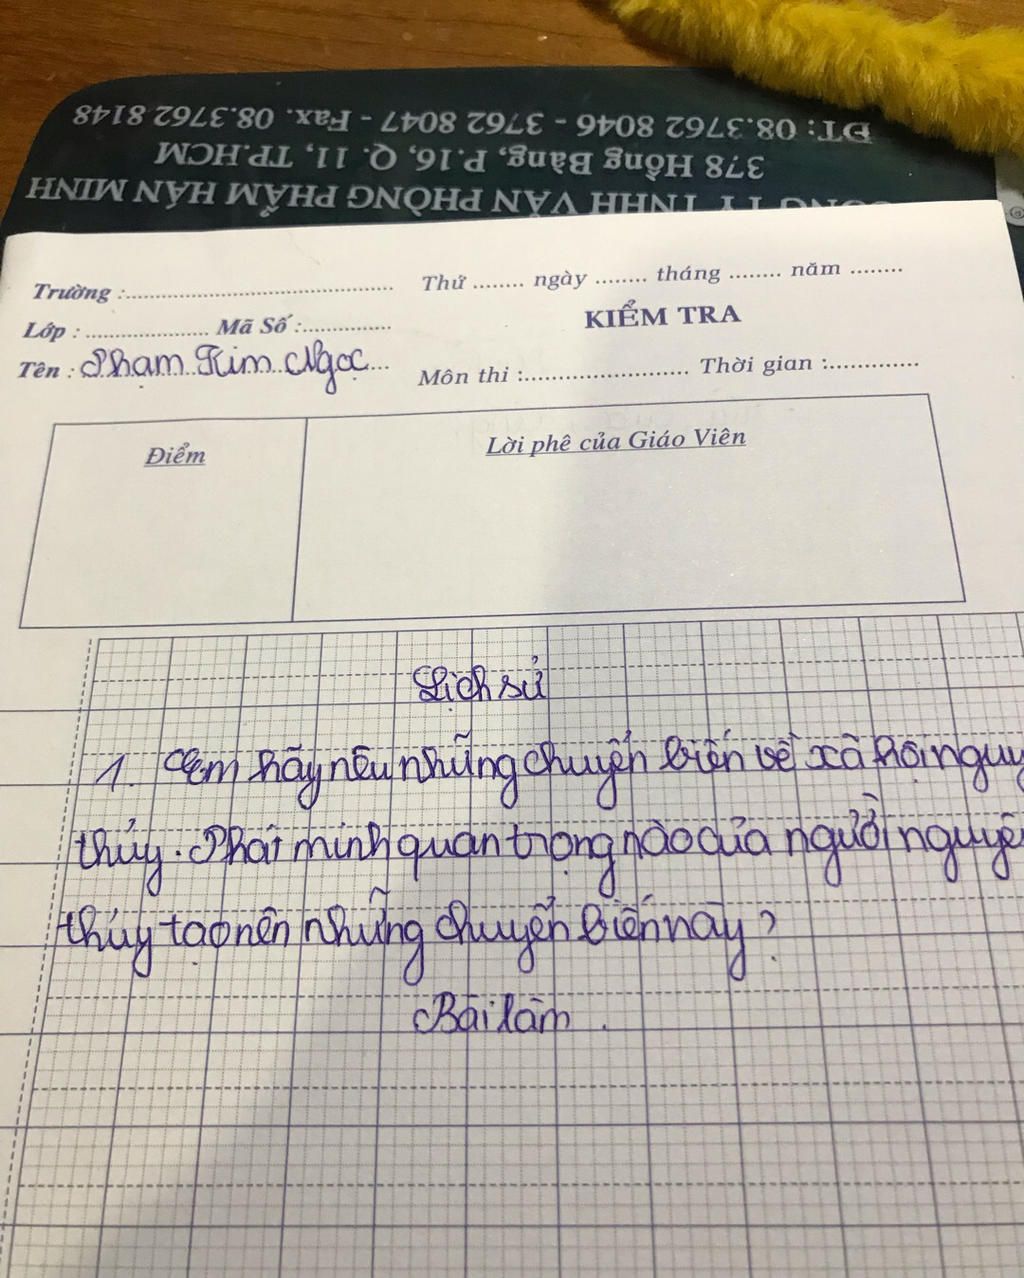 ĐT: 08.3762 8046 - 3762 8047 - Fax. 08.3762 8148
378 Hồng Bàng, P.16, Q. 11, TP.HCM
TY TNHH VĂN PHÒNG PHẨM HẠNH MINH
Trường :.......... Thứ ........ ngày ........ tháng ........ năm ........
Lớp : .......... Mã Số :..........
KIỂM TRA
Tên : Phạm Kim Ngọc
Môn thi :.......... Thời gian :..........
Điểm
Lời phê của Giáo Viên
Lịch sử
1. Em hãy nêu những chuyển biến về xã hội nguy
thủy. Phát minh quan trọng nào của người nguyê
thủy tạo nên những chuyển biến này?
Bài làm.